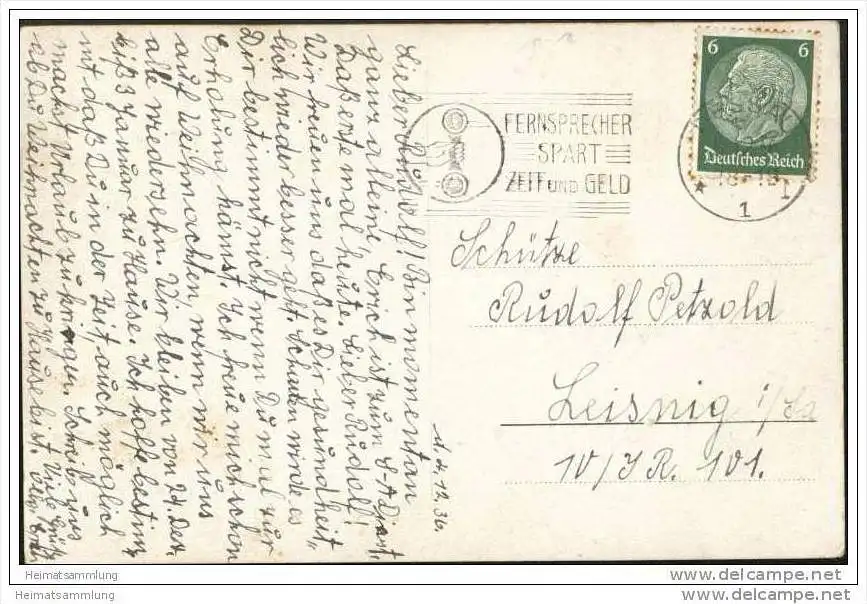 M. d. 12. 36.
Lieber Rudolf! Bin momentan
ganz alleine, Erich ist zum S-A Dienst,
Daß erste mal heute. Lieber Rudolf!
Wir freuen uns daß es Dir gesundheit"
lich wieder besser geht. Schaden würde es
Dir bestimmt nicht wenn Du mal zur
Erholung kämst. Ich freue mich schon
auf Weihnachten, wenn wir uns
alle wiedersehn. Wir bleiben von 24. Dez.
biß 3 Januar zu Hause. Ich hoffe bestim
mt daß Du in der Zeit auch möglich
machst Urlaub zu kriegen. Schreib uns
ob Du Weihnachten zu Hause bist. Viele Grüße
FERNSPRECHER
SPART
ZEIT UND GELD
6 6
Deutsches Reich
1
Schütze
Rudolf Petzold
Leisnig i/Sa
10/I.R. 101.
Heimatsammlung
Heimatsammlung
www.delcampe.net
www.delcampe.net